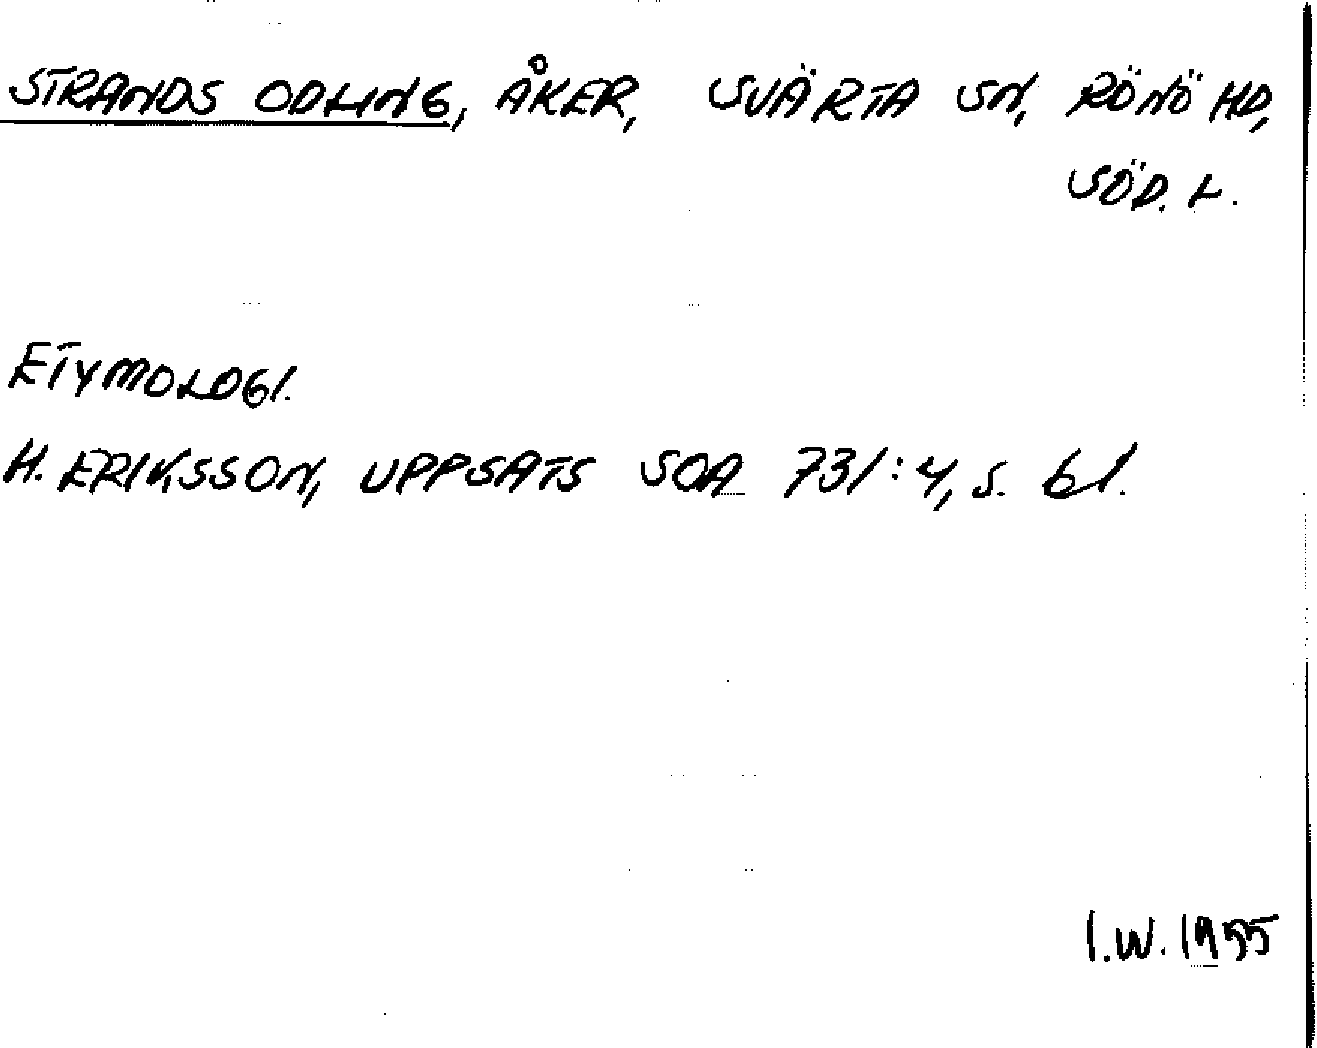 STRANDS ODLING, ÅKER, SVÄRTA SN, RÖNÖ HD,
SÖD. L.
ETYMOLOGI.
H. ERIKSSON, UPPSATS SOA 731:4, S. 61.
I.W. 1955